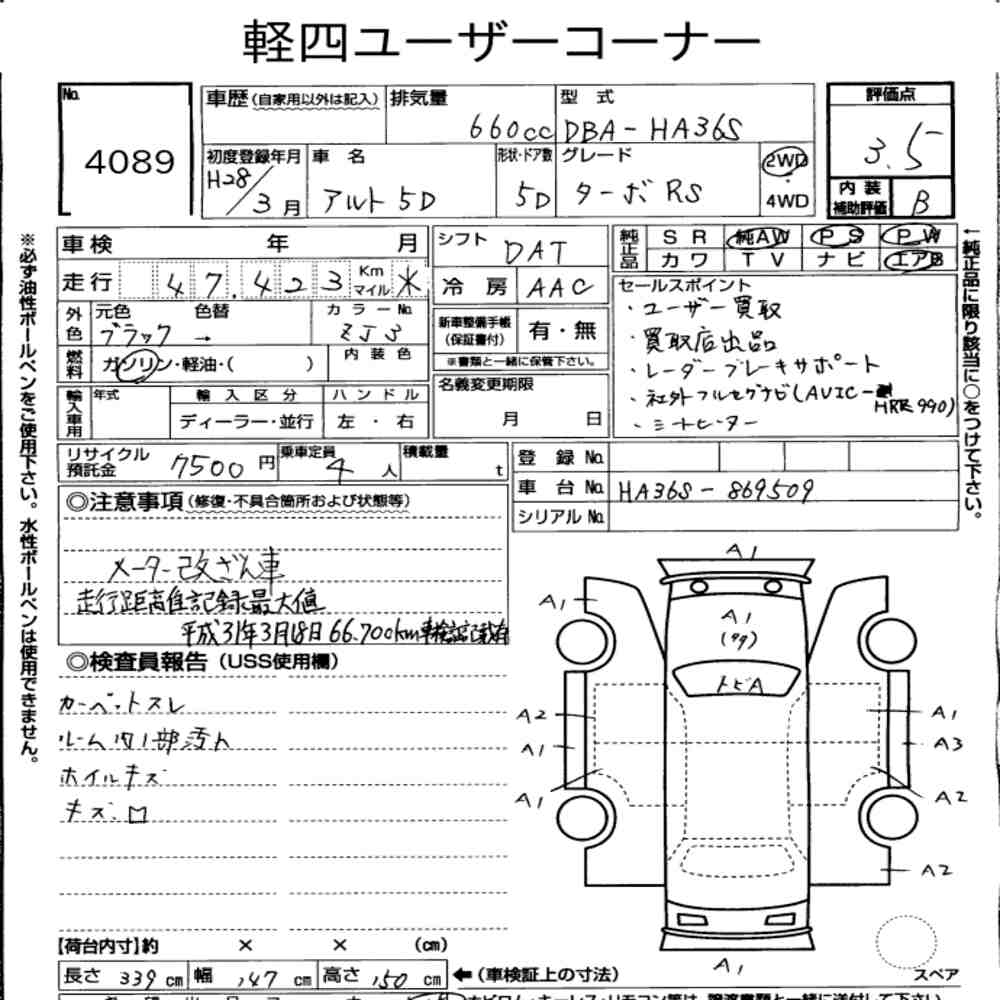 軽四ユーザーコーナー
No. 4089
車歴(自家用以外は記入)
排気量 660cc
型式 DBA-HA36S
評価点 3.5
初度登録年月 H28/3月
車名 アルト5D
形状・ドア数 5D
グレード ターボRS
2WD・4WD
内装補助評価 B
車検 年 月
シフト DAT
純正品 SR 純AW PS PW
カワ TV ナビ エアB
走行 47,423 Km マイル *
冷房 AAC
セールスポイント
・ユーザー買取
・買取店出品
・レーダーブレーキサポート
・社外フルセグナビ(AVIC-HRZ990)
・シートヒーター
外色 元色 ブラック 色替 →
カラーNo. ZJ3
新車整備手帳(保証書付) 有・無
※書類と一緒に保管下さい。
燃料 ガソリン・軽油・( )
内装色
名義変更期限 月 日
輸入車用 年式 輸入区分 ハンドル
ディーラー・並行 左・右
リサイクル預託金 7500円
乗車定員 4人
積載量 t
登録No.
車台No. HA36S-869509
シリアルNo.
◎注意事項(修復・不具合箇所および状態等)
メーター改ざん車
走行距離計記録最大値
平成31年3月18日 66,700km車検証記載有
◎検査員報告(USS使用欄)
カーペットスレ
ルーム内1部汚れ
ホイルキズ
キズ・ロ
A1
A1
A1
(タタ)
トビA
A2
A1
A1
A1
A3
A2
A2
A1
スペア
【荷台内寸】約 × × (cm)
長さ 339cm 幅 147cm 高さ 150cm ←(車検証上の寸法)
※必ず油性ボールペンをご使用下さい。水性ボールペンは使用できません。
←純正品に限り該当に○をつけて下さい。